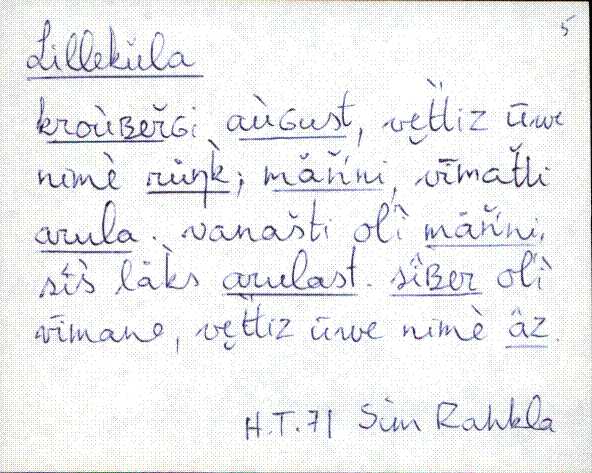 5
Lilleküla
kroùʙeřɢi aùɢust, vet̆̀liz ūwe
nimè rüŋk̀; mäň́ni, v̄īmat̆li
arula. vanašti olì mäň́ni,
sîs läks arulast. sîʙer olì
vīmane, vet̆̀liz ūwe nimè âz.
H.T.71 Sim Rahkla